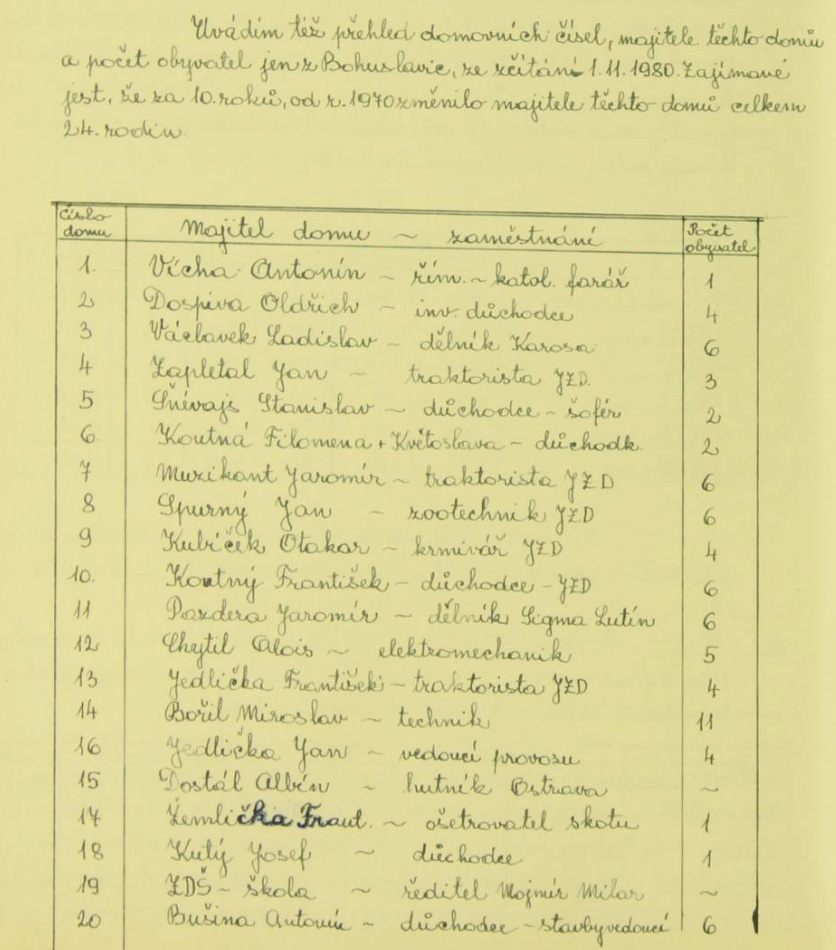 Uvádím též přehled domovních čísel, majitele těchto domů
a počet obyvatel jen z Bohuslavic, ze sčítání 1.11.1980. Zajímavé
jest, že za 10. roků, od r. 1970 změnilo majitele těchto domů celkem
24. rodin.
Číslo domu Majitel domu ~ zaměstnání Počet obyvatel
1. Vícha Antonín ~ řím. ~ katol. farář 1
2 Dospiva Oldřich ~ inv. důchodce 4
3 Václavek Ladislav ~ dělník Karosa 6
4 Zapletal Jan ~ traktorista JZD. 3
5 Stanislav ~ důchodce - šofér 2
6. Koutná Filomena + Květoslava - důchodk. 2
7 Muzikant Jaromír ~ traktorista JZD 6
8 Spurný Jan ~ zootechnik JZD 6
9 Kubíček Otakar ~ krmivář JZD 4
10. Koutný František ~ důchodce - JZD 6
11 Pazdera Jaromír ~ dělník Sigma Lutín 6
12 Chytil Alois ~ elektromechanik 5
13 Jedlička František ~ traktorista JZD 4
14 Bořil Miroslav ~ technik 11
16 Jedlička Jan ~ vedoucí provosu 4
15 Dostál Albín ~ hutník Ostrava ~
17 Žemlička Frant. ~ ošetrovatel skotu 1
18 Kutý Josef ~ důchodce 1
19 ZDŠ - škola ~ ředitel Mojmír Milar ~
20 Bušina Antonín ~ důchodce - stavbyvedoucí 6